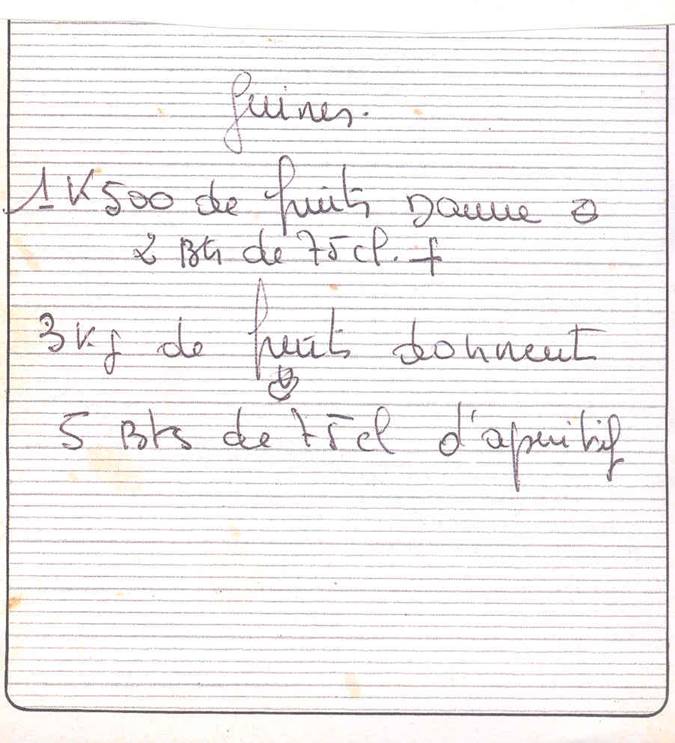 Guines.
1K500 de fruits Donne
2 Bts de 75cl. +
3Kg de fruits donnent
5 Bts de 75cl d'aperitif